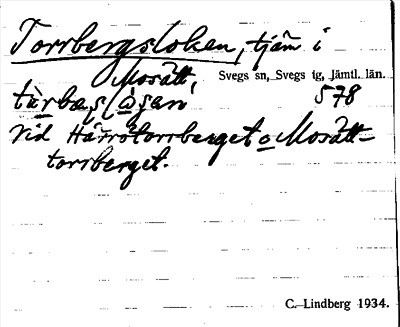 Torrbergsloken, tjärn i
Mosätt,
Svegs sn, Svegs tg, Jämtl. län.
578
Vid Härrötorrberget o Mosätt-
torrberget.
C. Lindberg 1934.